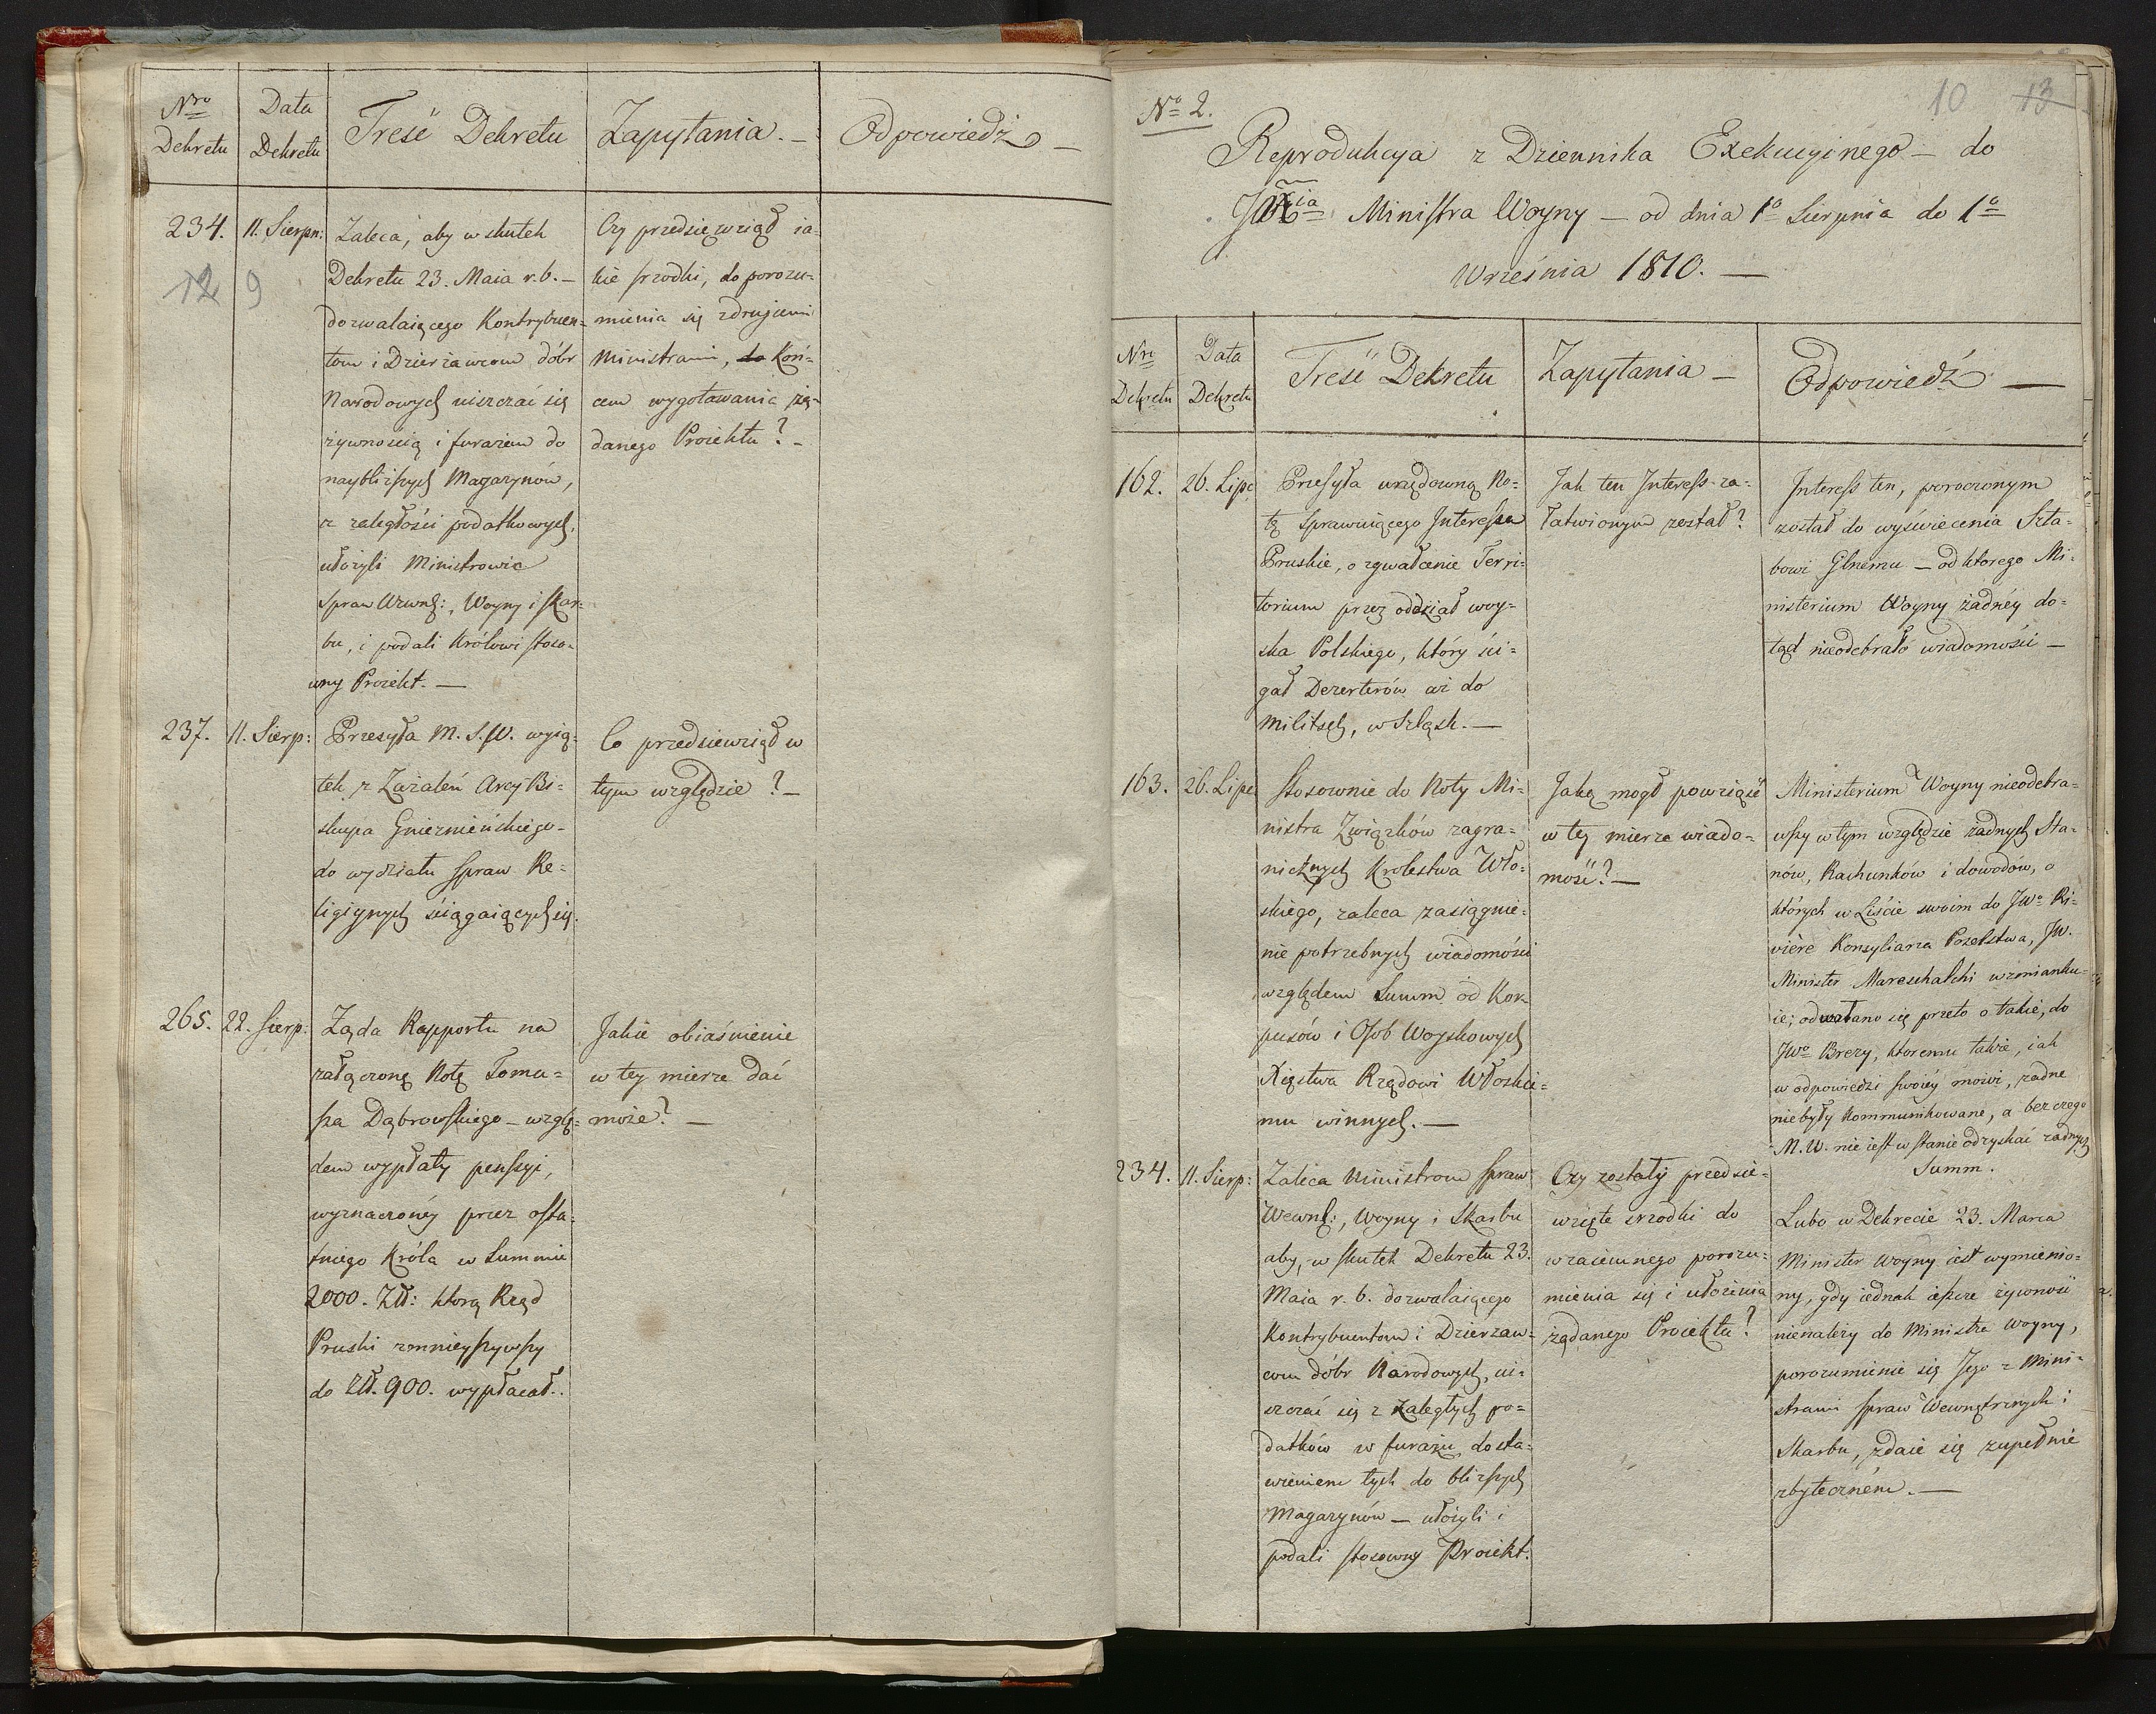 Nro Dekretu
Data Dekretu
Treść Dekretu
Zapytania. —
Odpowiedź —
234.
12 9
11. Sierpn:
Zaleca, aby w skutek
Dekretu 23. Maia r. b. —
dozwalaiącego Kontrybuen=
tom i Dzierżawcom dóbr
Narodowych uiszczać się
żywnością i furażem do
naybliższych Magazynów,
z zaległości podatkowych,
ułożyli Ministrowie
Spraw Wewnę:, Woyny i Skar=
bu, i podali Królowi stoso=
wny Proiekt. —
Czy przedsięwziął ia=
kie srzodki, do porozu=
mienia się z drugiemi
Ministrami, do Koń=
cem wygotowania żą=
danego Proiektu? —
237.
11. Sierp:
Przesyła M. S. W. wyią=
tek z Zażaleń Arcy Bi=
skupa Gnieznieńskiego
do wydziału Spraw Re=
ligiynych ściągaiących się.
Co przedsiewziął w
tym względzie? —
265.
22. Sierp:
Żąda Rapportu na
załączoną Notę Toma=
sza Dąbrowskiego — wzglę=
dem wypłaty pensyi,
wyznaczonéy przez osta=
tniego Króla w Summie
2000. Złł: ktorą Rząd
Pruski zmnieyszywszy
do Złł. 900. wypłacał.
Jakie obiaśnienie
w tey mierze dać
może? —
No 2.
10 13
Reprodukcya z Dziennika Exekucyinego — do
Ministra Woyny — od dnia 1o Sierpnia do 1o
Września 1810. —
Nro Dekretu
Data Dekretu
Treść Dekretu
Zapytania —
Odpowiedź —
162.
26. Lipc
Przesyła urzędowną No=
tę sprawuiącego Interessa
Pruskie, o zgwałcenie Terri=
torium przez oddział woy=
ska Polskiego, który ści=
gał Dezerterów aż do
Militsch, w Szląsk. —
Jak ten Interess za=
łatwionym został?
Interess ten, poruczonym
został do wyświecenia Szta=
bowi Glnemu — od ktorego Mi=
nisterium Woyny żadnéy do=
tąd nieodebrało wiadomości —
163.
26. Lipc
Stosownie do Noty Mi=
nistra Związków zagra=
nicznych Krolestwa Wło=
skiego, zaleca zasiągnie=
nie potrzebnych wiadomości
względem Summ od Kor=
pusów i Osob Woyskowych
Xięstwa Rządowi Włoskie=
mu winnych. —
Jaką mogł powziąść
w tey mierze wiado=
mość? —
Ministerium Woyny nieodebra=
wszy w tym względzie żadnych Sta=
nów, Rachunków i dowodów, o
których w Liście swoim do JWo Ri=
viere Konsyliarza Poselstwa, JW.
Minister Mareschalchi wzmianku=
ie; odwołano się przeto o takie, do
JWo Brezy, ktoremu także, iak
w odpowiedzi swoiéy mówi, żadne
niebyły kommunikowane, a bez czego
M. W. nie iest w stanie odzyskać żadnych
Summ.
234.
11. Sierp:
Zaleca Ministrom Spraw
Wewnę:, Woyny i Skarbu
aby, w skutek Dekretu 23.
Maia r. b. dozwalaiącego
Kontrybuentom i Dzierzaw=
com dóbr Narodowych, ui=
szczać się z zaległych po=
datków w furażu dosta=
wieniem tych do bliższych
Magazynów — ułożyli i
podali stosowny Proiekt.
Czy zostały przedsie=
wzięte srzodki do
wzaiemnego porozu=
mienia się i ułożenia
żądanego Proiektu?
Lubo w Dekrecie 23. Marca
Minister Woyny iest wymienio=
ny, gdy iednak ieszcze żywność
nienależy do Ministra Woyny,
porozumienie się Jego z Mini=
strami Spraw Wewnętrznych i
Skarbu, zdaie się zupełnie
zbyteczném. —